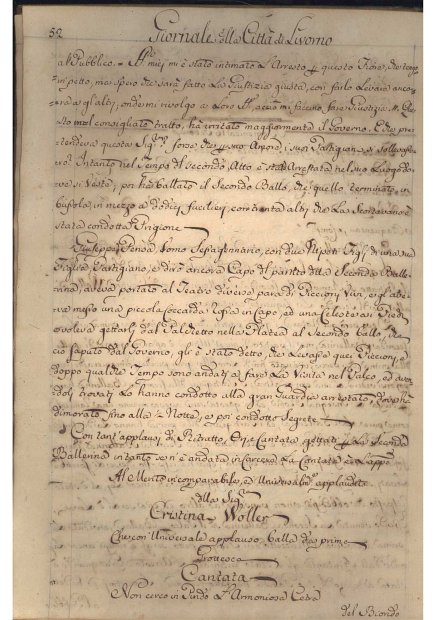 52 Giornale della Città di Livorno
al Pubblico. = mi è stato intimato L'Arresto questo Fiore, che tengo
in petto, ma spero che sarà fatto La Giustizia giusta, con farlo Levare anco
a gl'altri, onde mi rivolgo a Loro acciò mi faccino fare Giustizia. =
mal consigliato tratto, ha irritato maggiormente il Governo. E che pre
tendeva questa Sig.ra forse che suo Amore, i suoi Partigiani si sollevasse
ro? Intanto nel tempo del secondo Atto è stata Arrestata nel suo Luogo do
ve si veste, poi ha ballato il Secondo Ballo, e quello terminato, in
Bussola, in mezzo a dodici fucilieri, con trenta altri che La Scortavano è
stata condotta in Prigione
Giuseppe Pensa, Uomo Sessagenario, con due Nipoti Figli di una sua
Figlia Partigiano, e dirò ancora Capo del partito della Seconda Balle
rina, aveva portato al Teatro diverse para di Piccioni Vivi, e gl'aveva
messo una piccola Coccarda Rossa in Capo, ed una Celeste ai Piedi
e voleva gettarli dal Palchetto nella Platea al Secondo Ballo, che
ciò saputo dal Governo, gli è stato detto, che Levasse quei Piccioni, e
doppo qualche tempo sono andati a fare La Visita nel Palco, ed aven
doli trovati Lo hanno condotto alla gran Guardia arrestato, dove ha
dimorato fino alla Notte, e poi condotto Segrete
Con tant'applausi di Ritratto, e Cantata gettati La Seconda
Ballerina intanto se n'è andata in Carcere La Cantata è L'appo.
Al Merito incomparabile, ed Universalm.te applaudito
della Sig.ra
Cristina Woller
Che con Universale applauso balla da prima
Grottesca
Cantata
Non cerco in Pindo L'Armoniosa Cetra
del Biondo